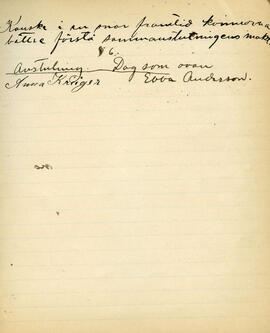 Kanske i en snar framtid kvinnorna
bättre förstå sammanslutningens makt.
§ 6.
Avslutning. Dag som ovan
Anna Kröger Ebba Anderson.